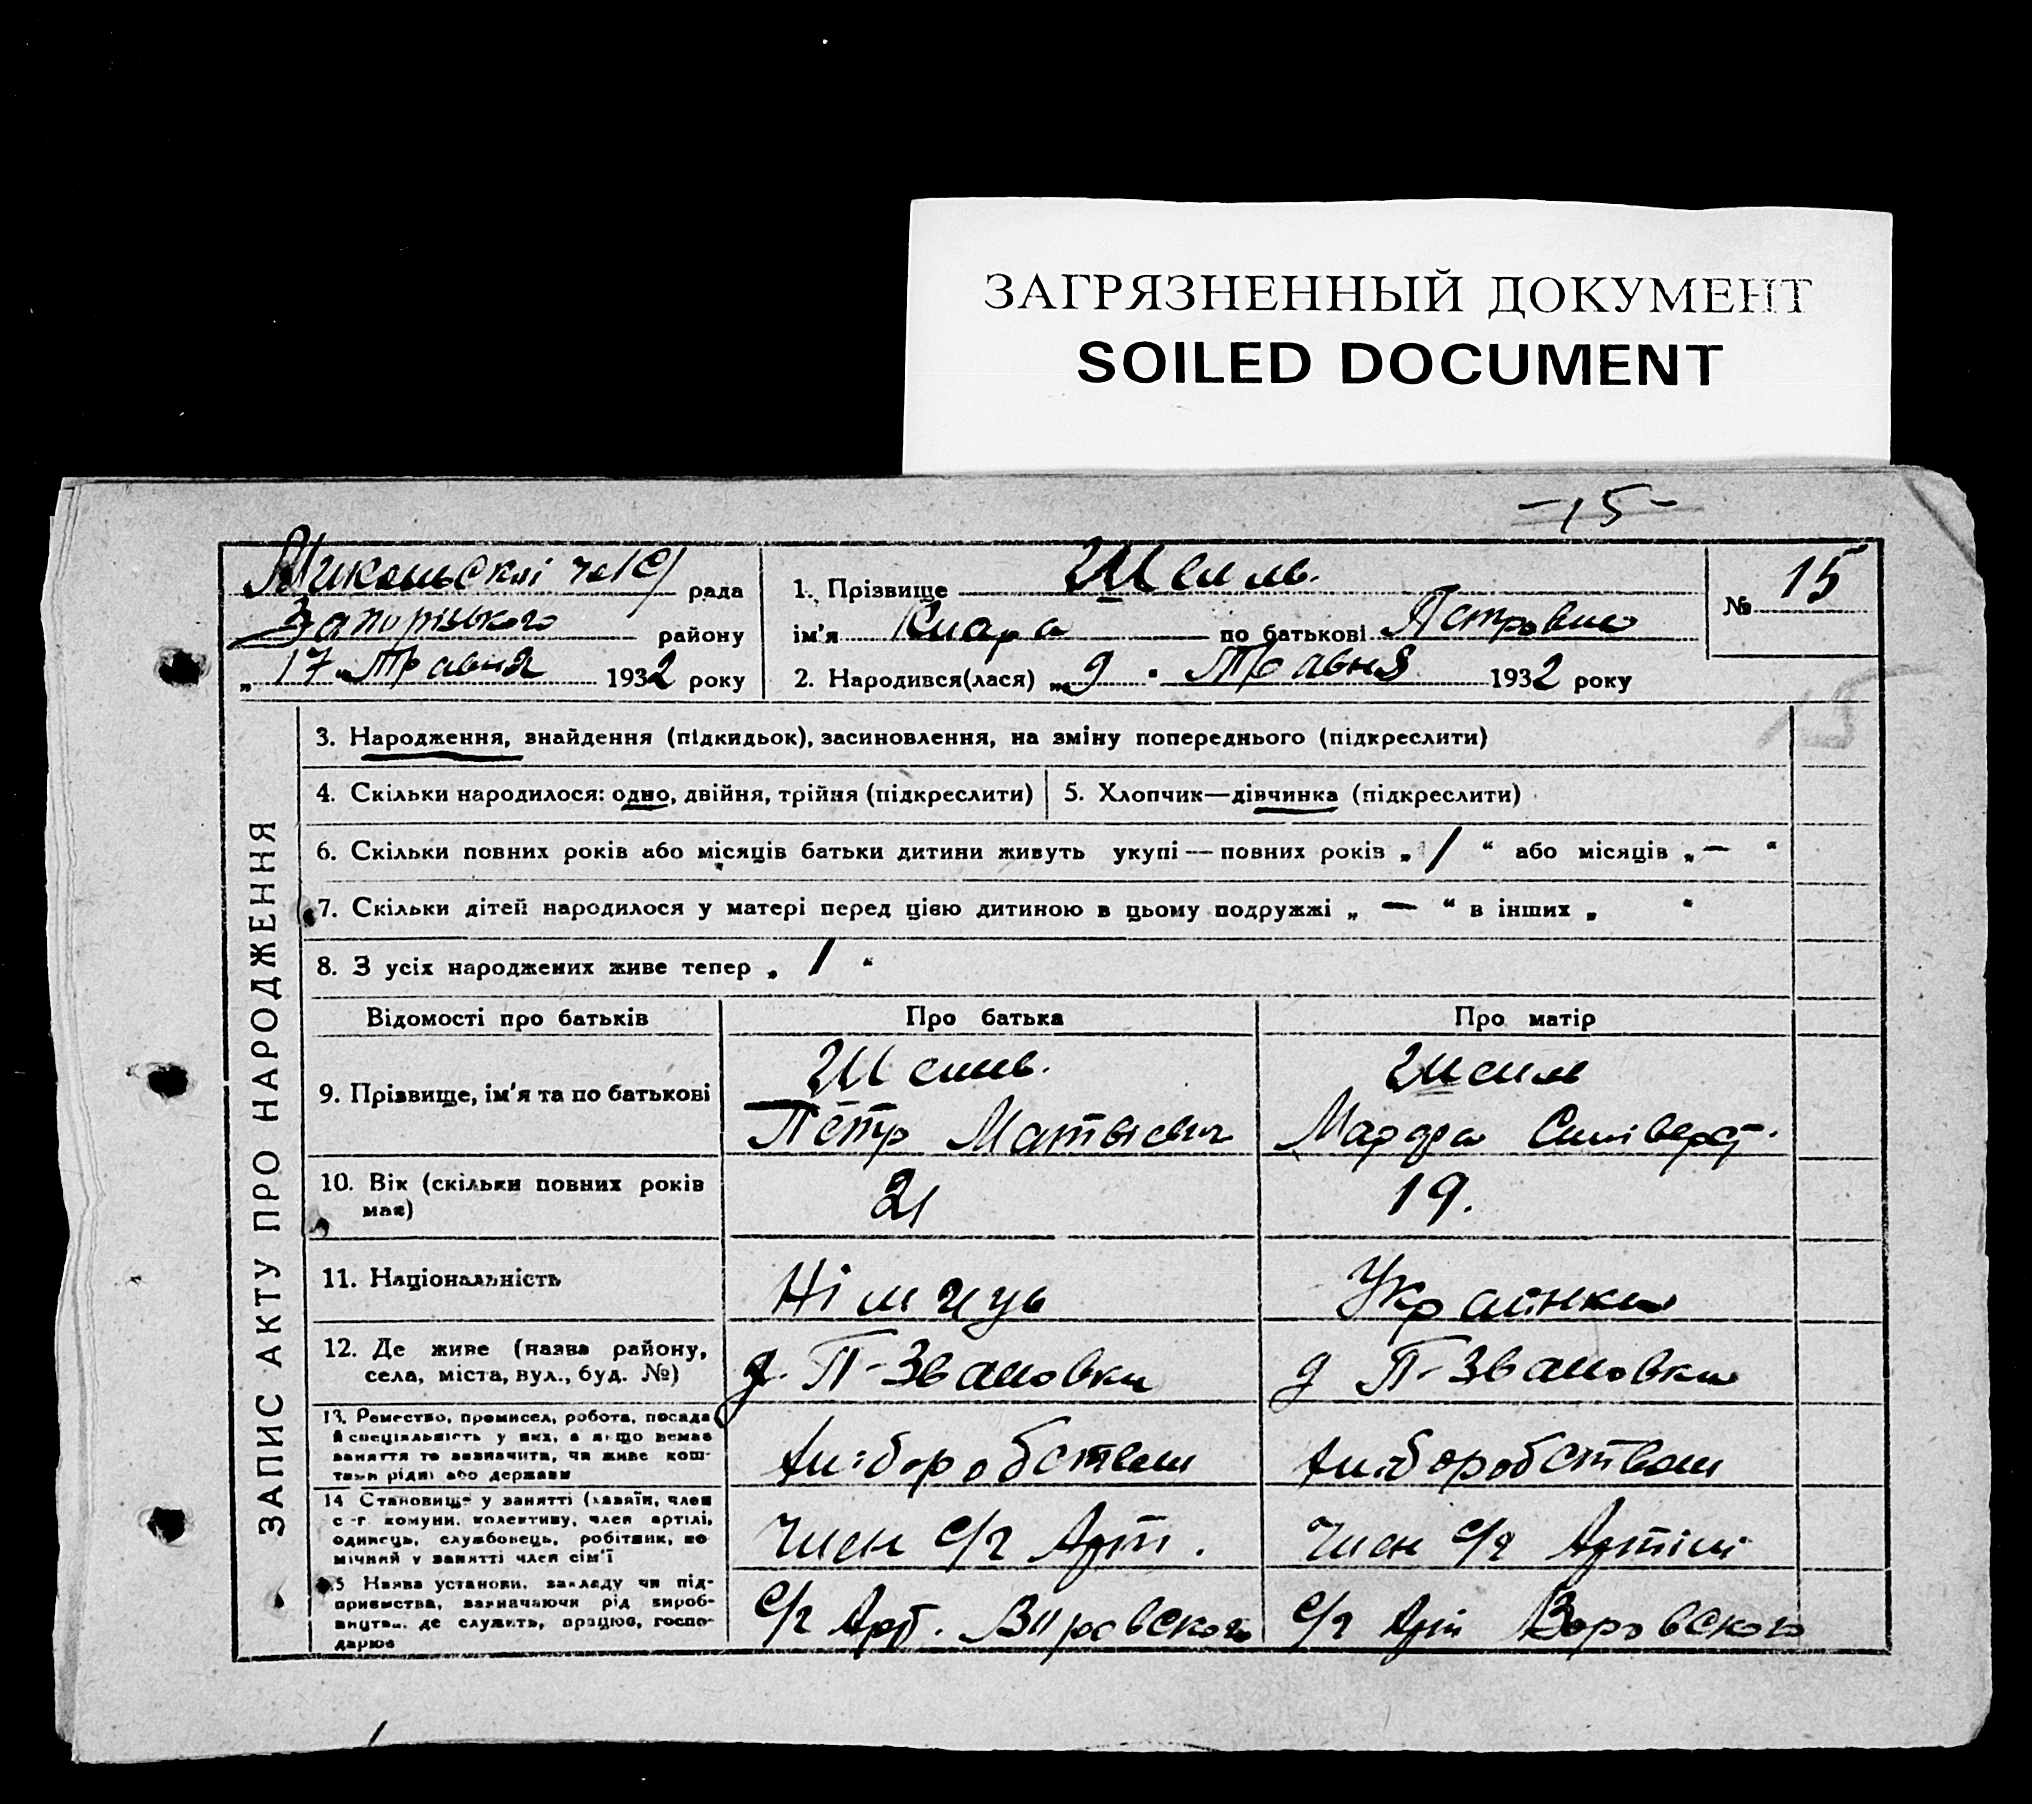 ЗАГРЯЗНЕННЫЙ ДОКУМЕНТ
SOILED DOCUMENT
-15-
рада
Запорізького району
„17“ Травня 1932 року
1. Прізвище
ім'я Клара по батькові Петровна
2. Народився(лася) „9“ Травня 1932 року
№ 15
15
ЗАПИС АКТУ ПРО НАРОДЖЕННЯ
3. Народження, знайдення (підкидьок), засиновлення, на зміну попереднього (підкреслити)
4. Скільки народилося: одно, двійня, трійня (підкреслити)
5. Хлопчик—дівчинка (підкреслити)
6. Скільки повних років або місяців батьки дитини живуть укупі — повних років „1“ або місяців „—“
7. Скільки дітей народилося у матері перед цією дитиною в цьому подружжі „—“ в інших „ “
8. З усіх народжених живе тепер „1“
Відомості про батьків
Про батька
Про матір
9. Прізвище, ім'я та по батькові
Петр
10. Вік (скільки повних років має)
21
19.
11. Національність
Німець
Українка
12. Де живе (назва району, села, міста, вул., буд. №)
13. Ремество, промисел, робота, посада й спеціяльність у них, а якщо немає заняття то зазначити, чи живе коштами рідні або держави
Хліборобством
Хліборобством
14 Становище у занятті (хазяїн, член с.-г. комуни, колективу, член артілі, одинець, службовець, робітник, помічний у занятті член сім'ї
Член с/г Арт.
Член с/г Артілі
15 Назва установи, закладу чи підприємства, зазначаючи рід виробництва, де служить, працює, господарює
с/г Арт. Воровського
с/г Арт Воровського